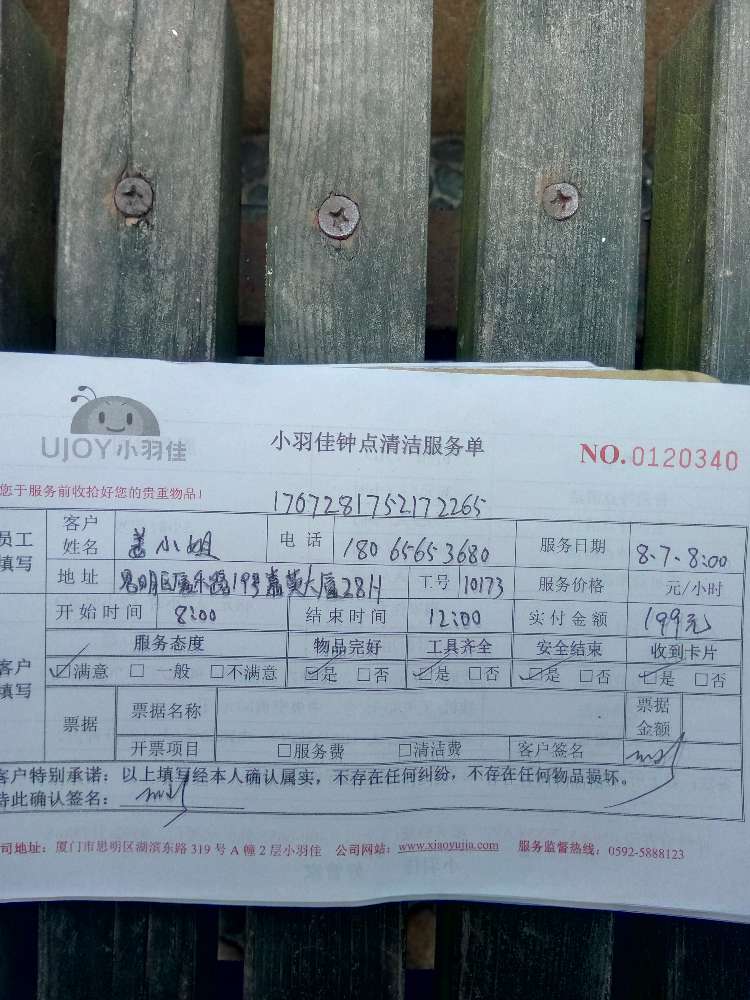 UJOY小羽佳
小羽佳钟点清洁服务单
NO.0120340
您于服务前收拾好您的贵重物品!
1767281752172265
员工填写 客户姓名 姜小姐 电话 180 6565 3680 服务日期 8.7-8:00
地址 思明区嘉禾路19号嘉英大厦28H 工号 10173 服务价格 元/小时
开始时间 8:00 结束时间 12:00 实付金额 199元
服务态度 物品完好 工具齐全 安全结束 收到卡片
客户填写 ☑满意 □一般 □不满意 ☑是 □否 ☑是 □否 ☑是 □否 ☑是 □否
票据 票据名称 票据金额
开票项目 □服务费 □清洁费 客户签名
客户特别承诺:以上填写经本人确认属实,不存在任何纠纷,不存在任何物品损坏。
特此确认签名:
司地址:厦门市思明区湖滨东路 319 号 A 幢 2 层小羽佳 公司网站:www.xiaoyujia.com 服务监督热线:0592-5888123